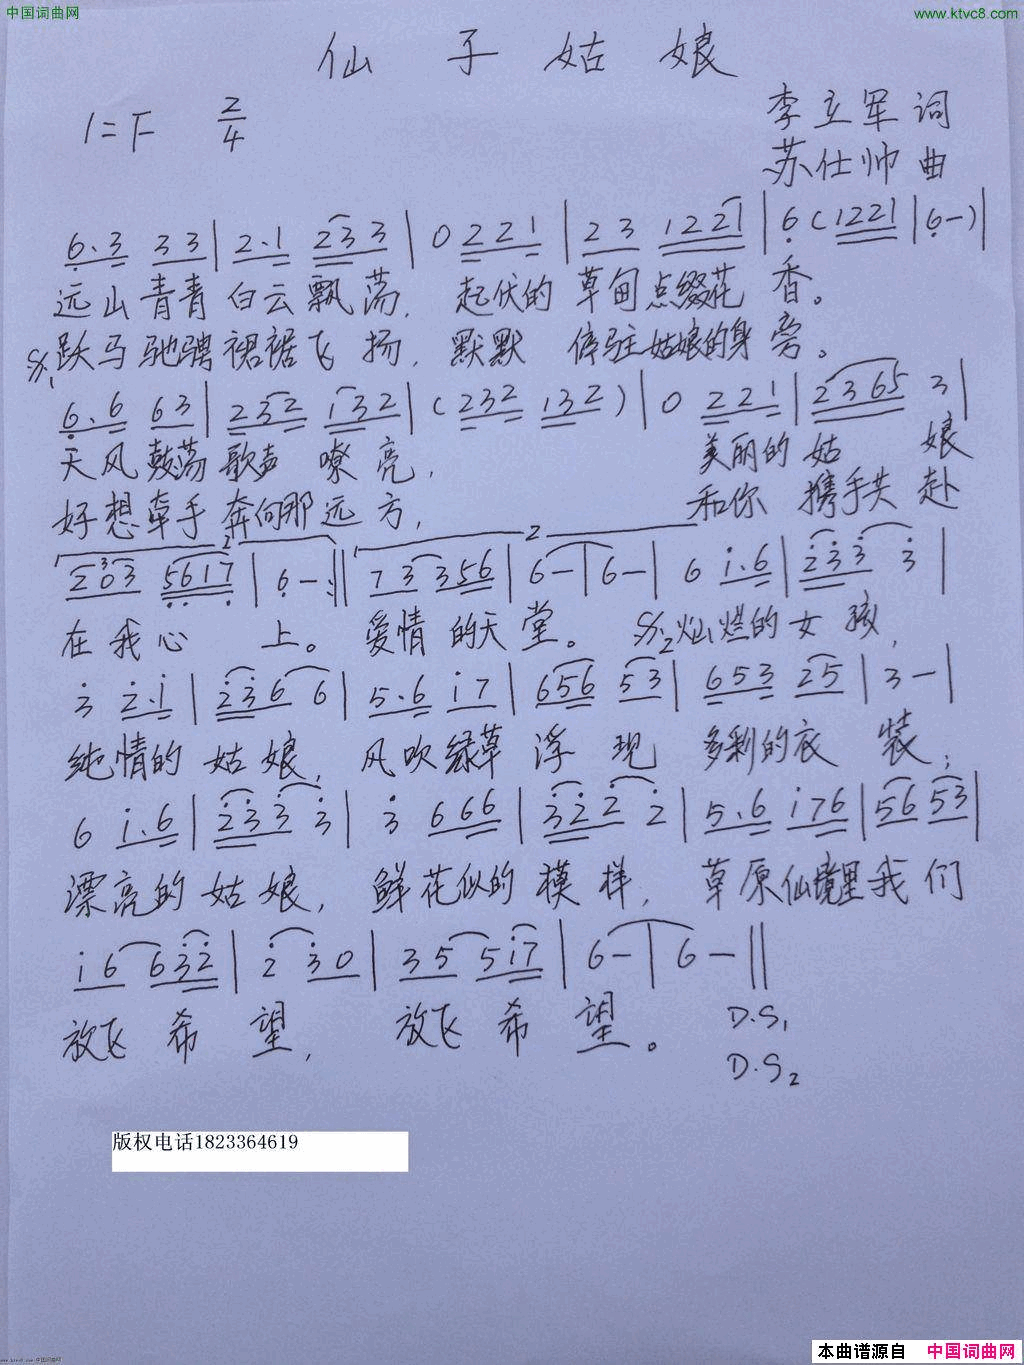 中国词曲网
www.ktvc8.com
仙子姑娘
1=F 2/4
李立军 词
苏仕帅 曲
6.3 33 | 2.1 233 | 0 221 | 23 1221 | 6 (1221 | 6-) |
远山青青白云飘荡, 起伏的草甸点缀花香。
跃马驰骋裙裾飞扬, 默默停驻姑娘的身旁。
6.6 63 | 232 132 | (232 132) | 0 221 | 2365 3 |
天风鼓荡歌声嘹亮, 美丽的姑娘
好想牵手奔向那远方, 和你携手共赴
203 5617 | 6- :|| 73 356 | 6- | 6- | 6 i.6 | 233 3 |
在我心上。 爱情的天堂。 灿烂的女孩,
3 2.i | 236 6 | 5.6 i7 | 656 53 | 653 25 | 3- |
纯情的姑娘, 风吹绿草浮现多彩的衣装;
6 i.6 | 233 3 | 3 666 | 322 2 | 5.6 i76 | 56 53 |
漂亮的姑娘, 鲜花似的模样, 草原仙境里我们
i6 632 | 2 30 | 35 5i7 | 6- | 6- ||
放飞希望, 放飞希望。
D.S1
D.S2
版权电话1823364619
本曲谱源自 中国词曲网